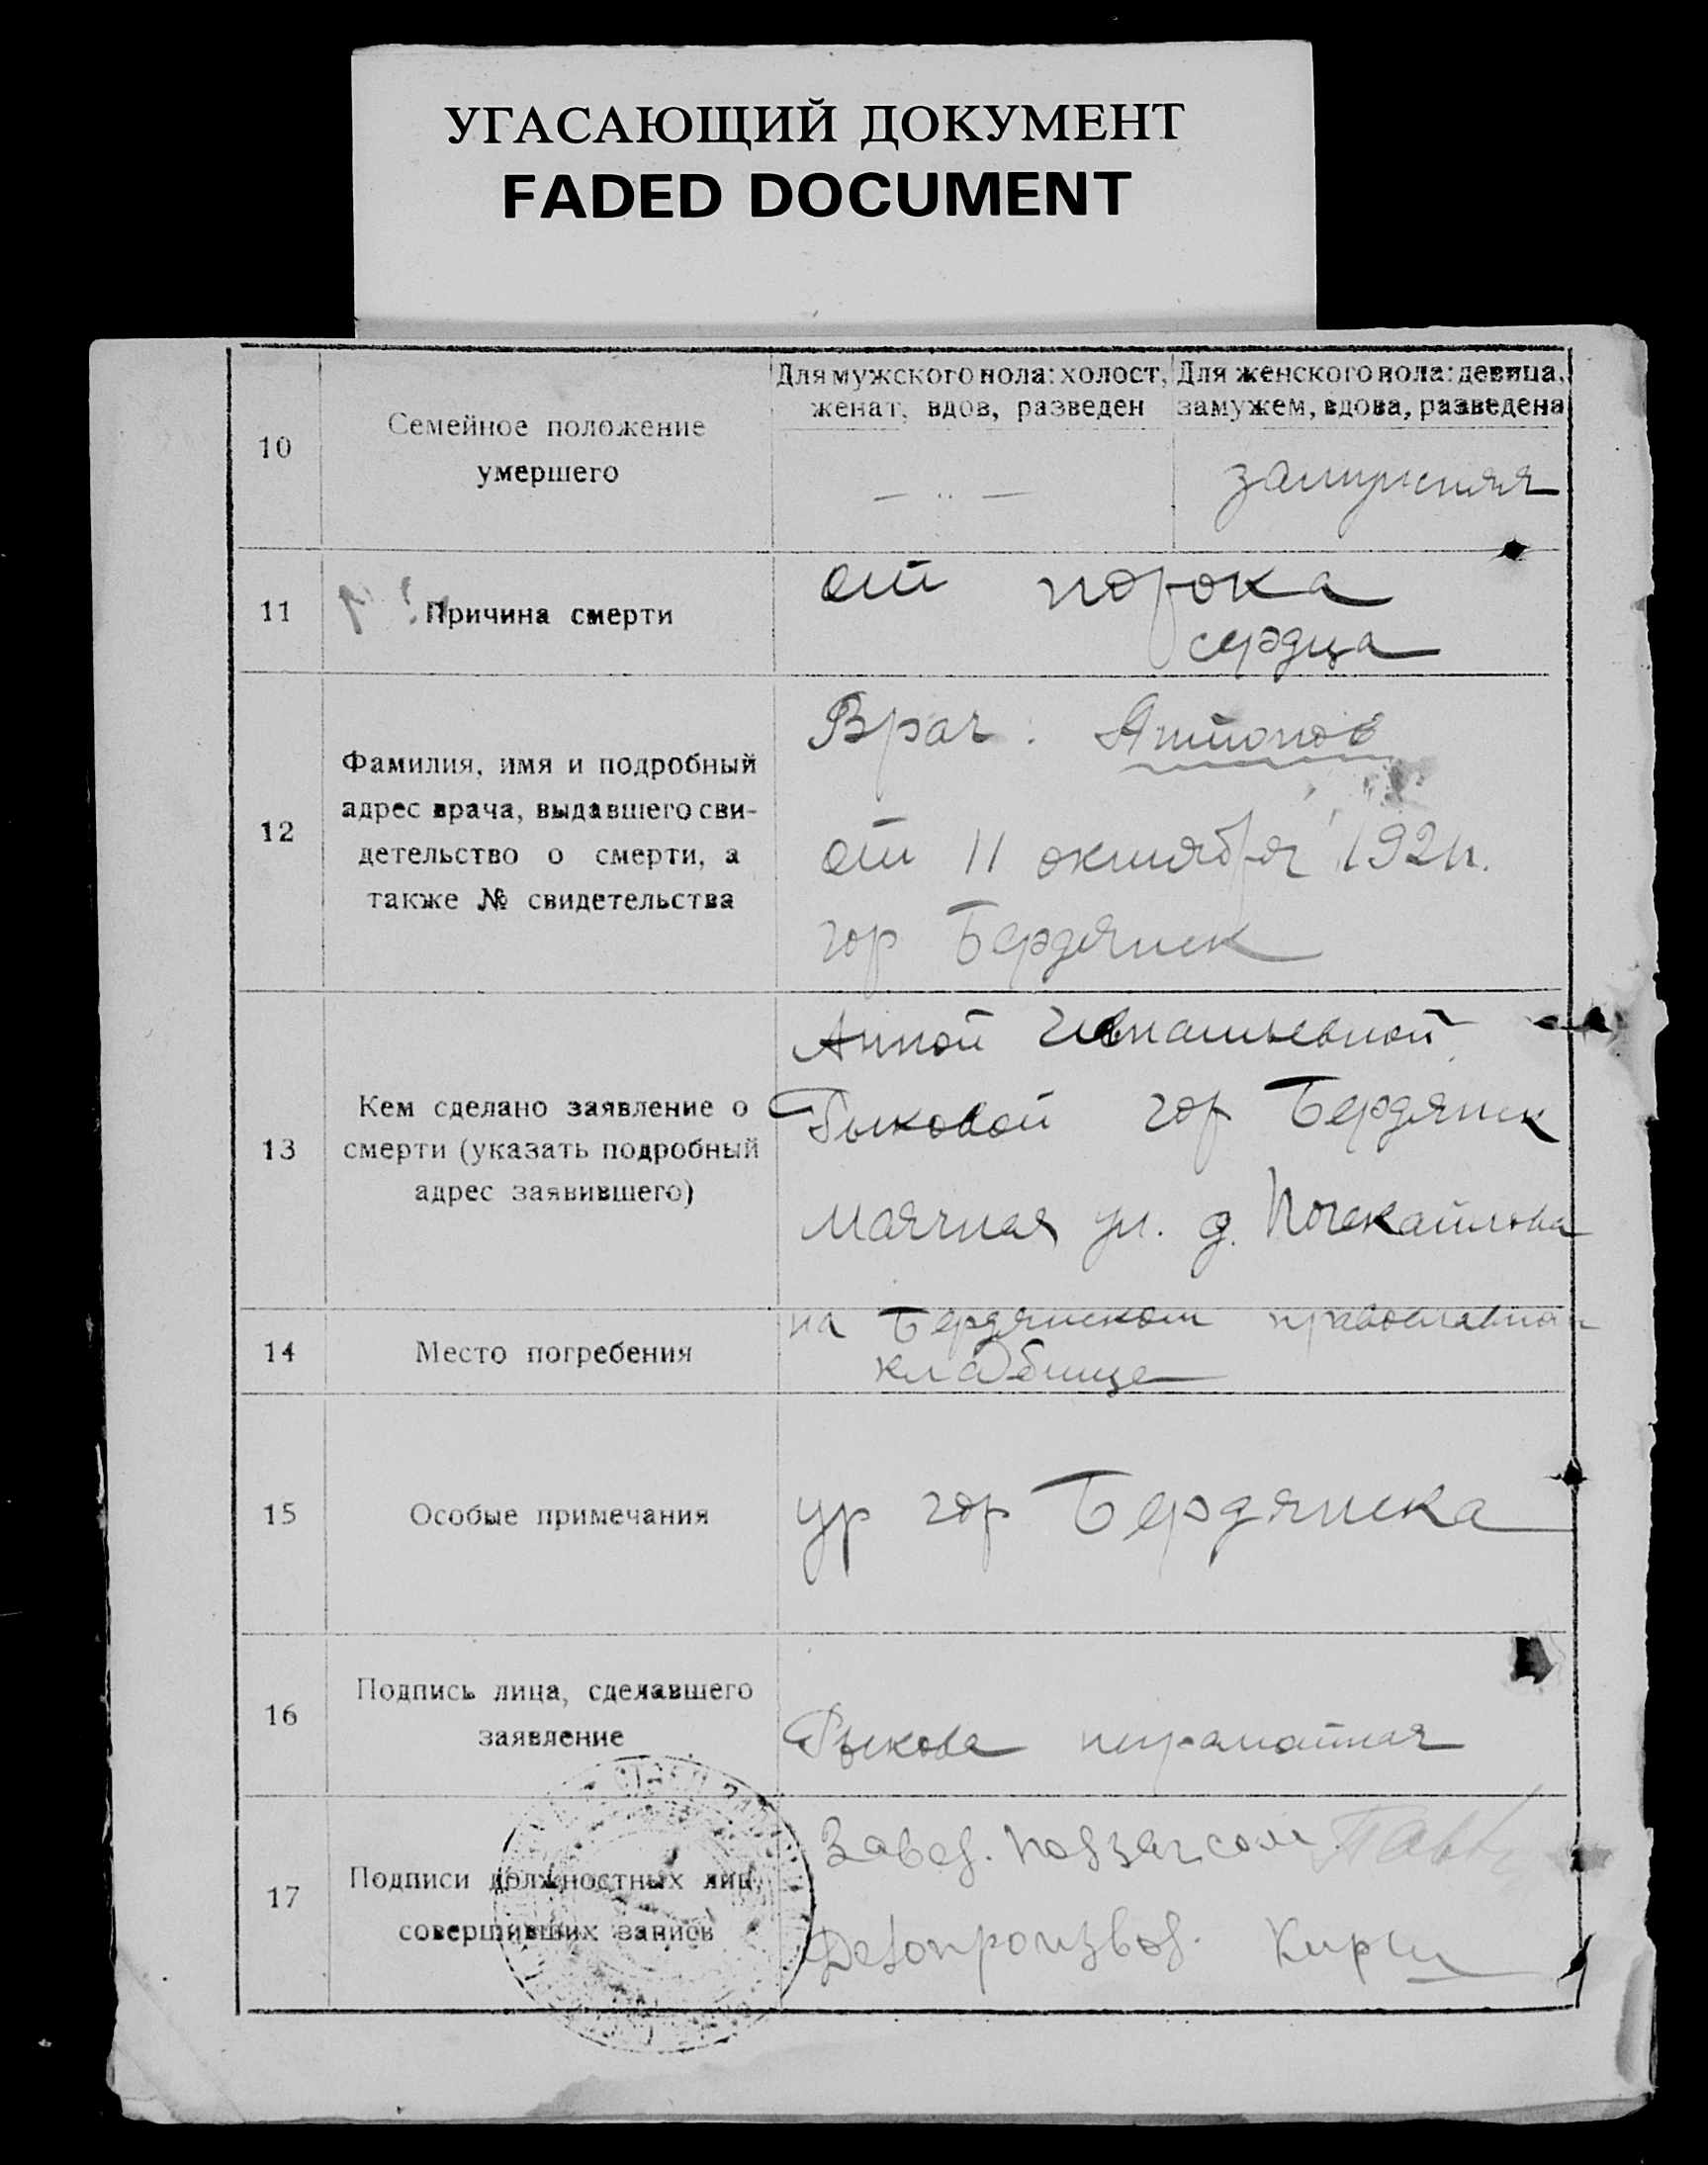 УГАСАЮЩИЙ ДОКУМЕНТ
FADED DOCUMENT
10
Семейное положение
умершего
Для мужского пола: холост,
женат, вдов, разведен
Для женского пола: девица,
замужем, вдова, разведена
— .. —
замужняя
11
Причина смерти
от порока
сердца
12
Фамилия, имя и подробный
адрес врача, выдавшего сви-
детельство о смерти, а
также № свидетельства
Врач: Антонов
от 11 октября 1921г.
гор Бердянск
13
Кем сделано заявление о
смерти (указать подробный
адрес заявившего)
Анной Игнатьевной
Быковой гор Бердянск
маячная ул. д.
14
Место погребения
на Бердянском православном
кладбище
15
Особые примечания
ур гор Бердянска
16
Подпись лица, сделавшего
заявление
Быкова неграмотная
17
Подписи должностных лиц,
совершивших запись
Завед. подзагсом
Делопроизвод.